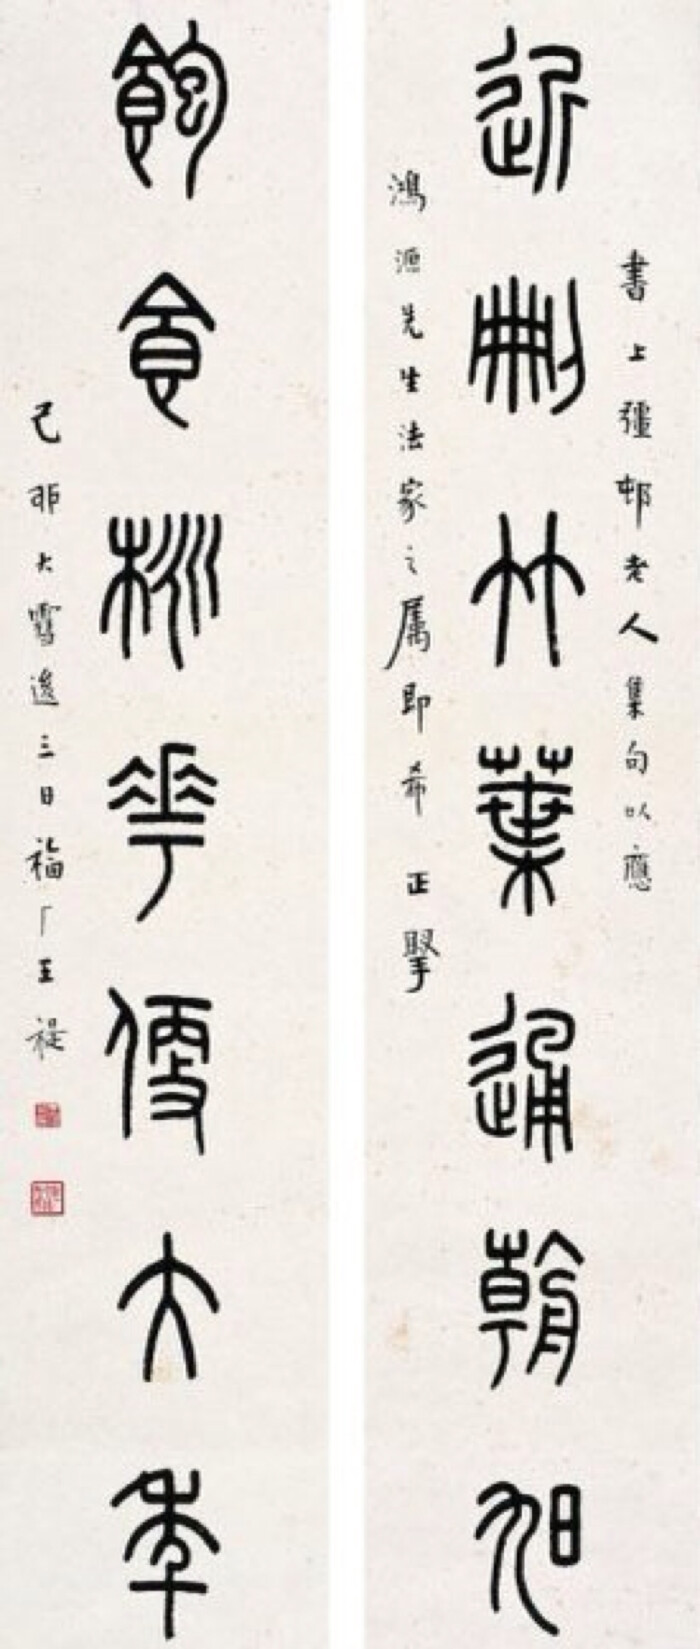 書上彊邨老人集句以應
近刪竹葉通朝旭
鴻源先生法家之屬即希正掔
飽食桃華便大年
己卯大雪後三日福厂王禔